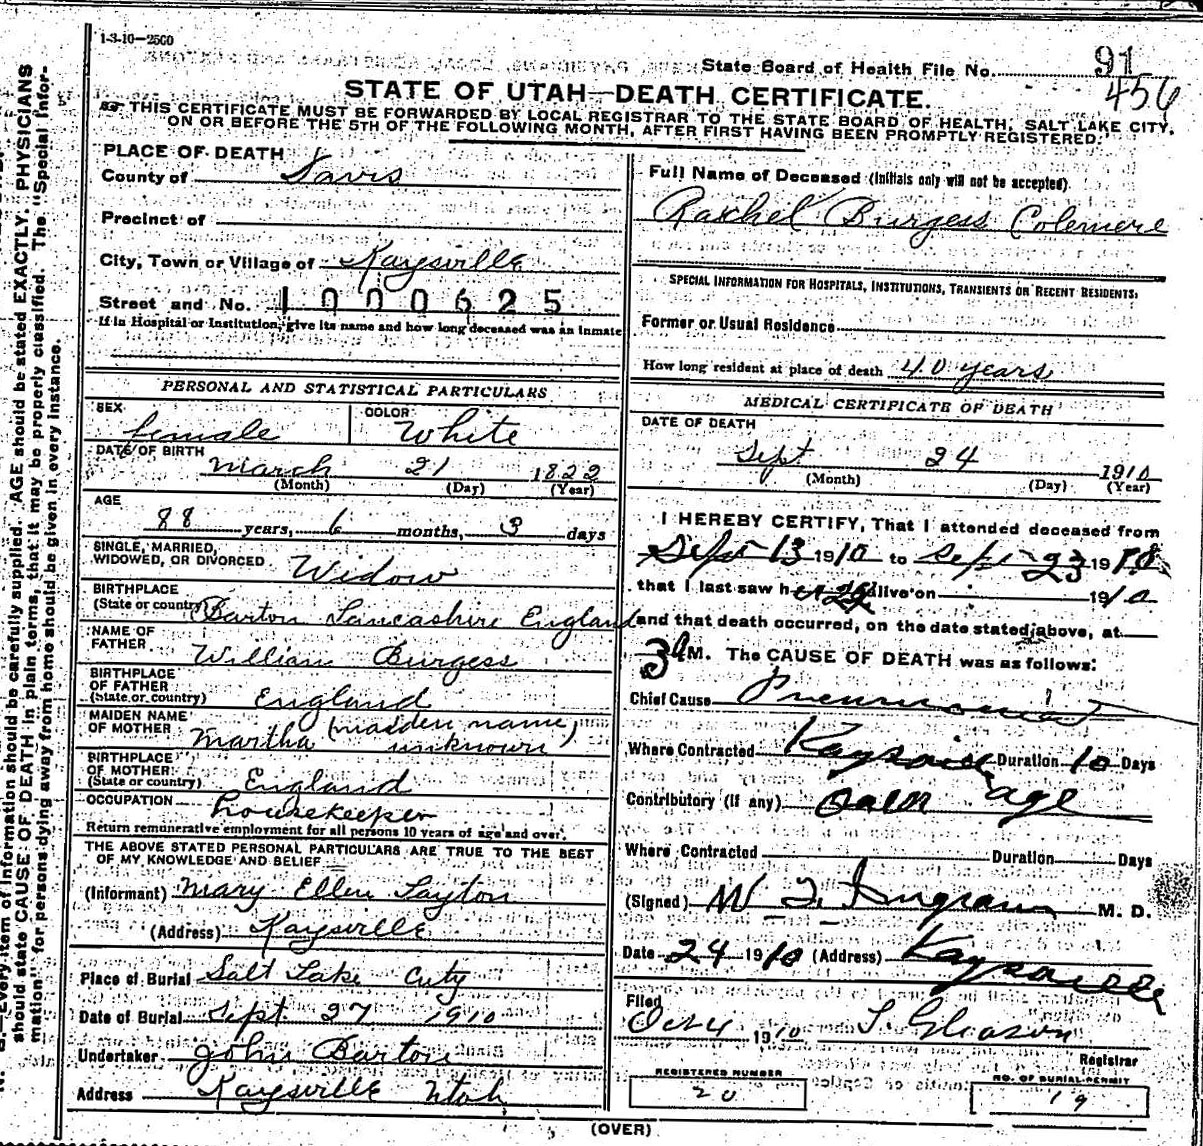 1-3-10-2500
State Board of Health File No. 91
456
STATE OF UTAH—DEATH CERTIFICATE.
THIS CERTIFICATE MUST BE FORWARDED BY LOCAL REGISTRAR TO THE STATE BOARD OF HEALTH, SALT LAKE CITY,
ON OR BEFORE THE 5TH OF THE FOLLOWING MONTH, AFTER FIRST HAVING BEEN PROMPTLY REGISTERED.
PLACE OF DEATH
County of Davis
Precinct of
City, Town or Village of Kaysville
Street and No. 1000625
If in Hospital or Institution, give its name and how long deceased was an inmate
PERSONAL AND STATISTICAL PARTICULARS
SEX female COLOR White
DATE OF BIRTH March 21 1822
(Month) (Day) (Year)
AGE
88 years, 6 months, 3 days
SINGLE, MARRIED,
WIDOWED, OR DIVORCED Widow
BIRTHPLACE
(State or country) Barton Lancashire England
NAME OF
FATHER William Burgess
BIRTHPLACE
OF FATHER
(State or country) England
MAIDEN NAME
OF MOTHER Martha (maiden name) unknown
BIRTHPLACE
OF MOTHER
(State or country) England
OCCUPATION housekeeper
Return remunerative employment for all persons 10 years of age and over.
THE ABOVE STATED PERSONAL PARTICULARS ARE TRUE TO THE BEST
OF MY KNOWLEDGE AND BELIEF
(Informant) Mary Ellen Layton
(Address) Kaysville
Place of Burial Salt Lake City
Date of Burial Sept 27 1910
Undertaker John Barton
Address Kaysville Utah
Full Name of Deceased (Initials only will not be accepted)
Rachel Burgess Colemere
SPECIAL INFORMATION FOR HOSPITALS, INSTITUTIONS, TRANSIENTS OR RECENT RESIDENTS.
Former or Usual Residence
How long resident at place of death 40 years
MEDICAL CERTIFICATE OF DEATH
DATE OF DEATH
Sept 24 1910
(Month) (Day) (Year)
I HEREBY CERTIFY, That I attended deceased from
Sept 13 1910 to Sept 23 1910
that I last saw her alive on 1910
and that death occurred, on the date stated above, at
3 M. The CAUSE OF DEATH was as follows:
Chief Cause Pneumonia
Where Contracted Kaysville Duration 10 Days
Contributory (if any) age
Where Contracted Duration Days
(Signed) W Ingram M. D.
Date 24 1910 (Address) Kaysville
Filed
Oct 4 1910 Gleason
Registrar
REGISTERED NUMBER
20
NO. OF BURIAL PERMIT
19
(OVER)
Every item of information should be carefully supplied. AGE should be stated EXACTLY. PHYSICIANS
should state CAUSE OF DEATH in plain terms, that it may be properly classified. The "Special Infor-
mation" for persons dying away from home should be given in every instance.